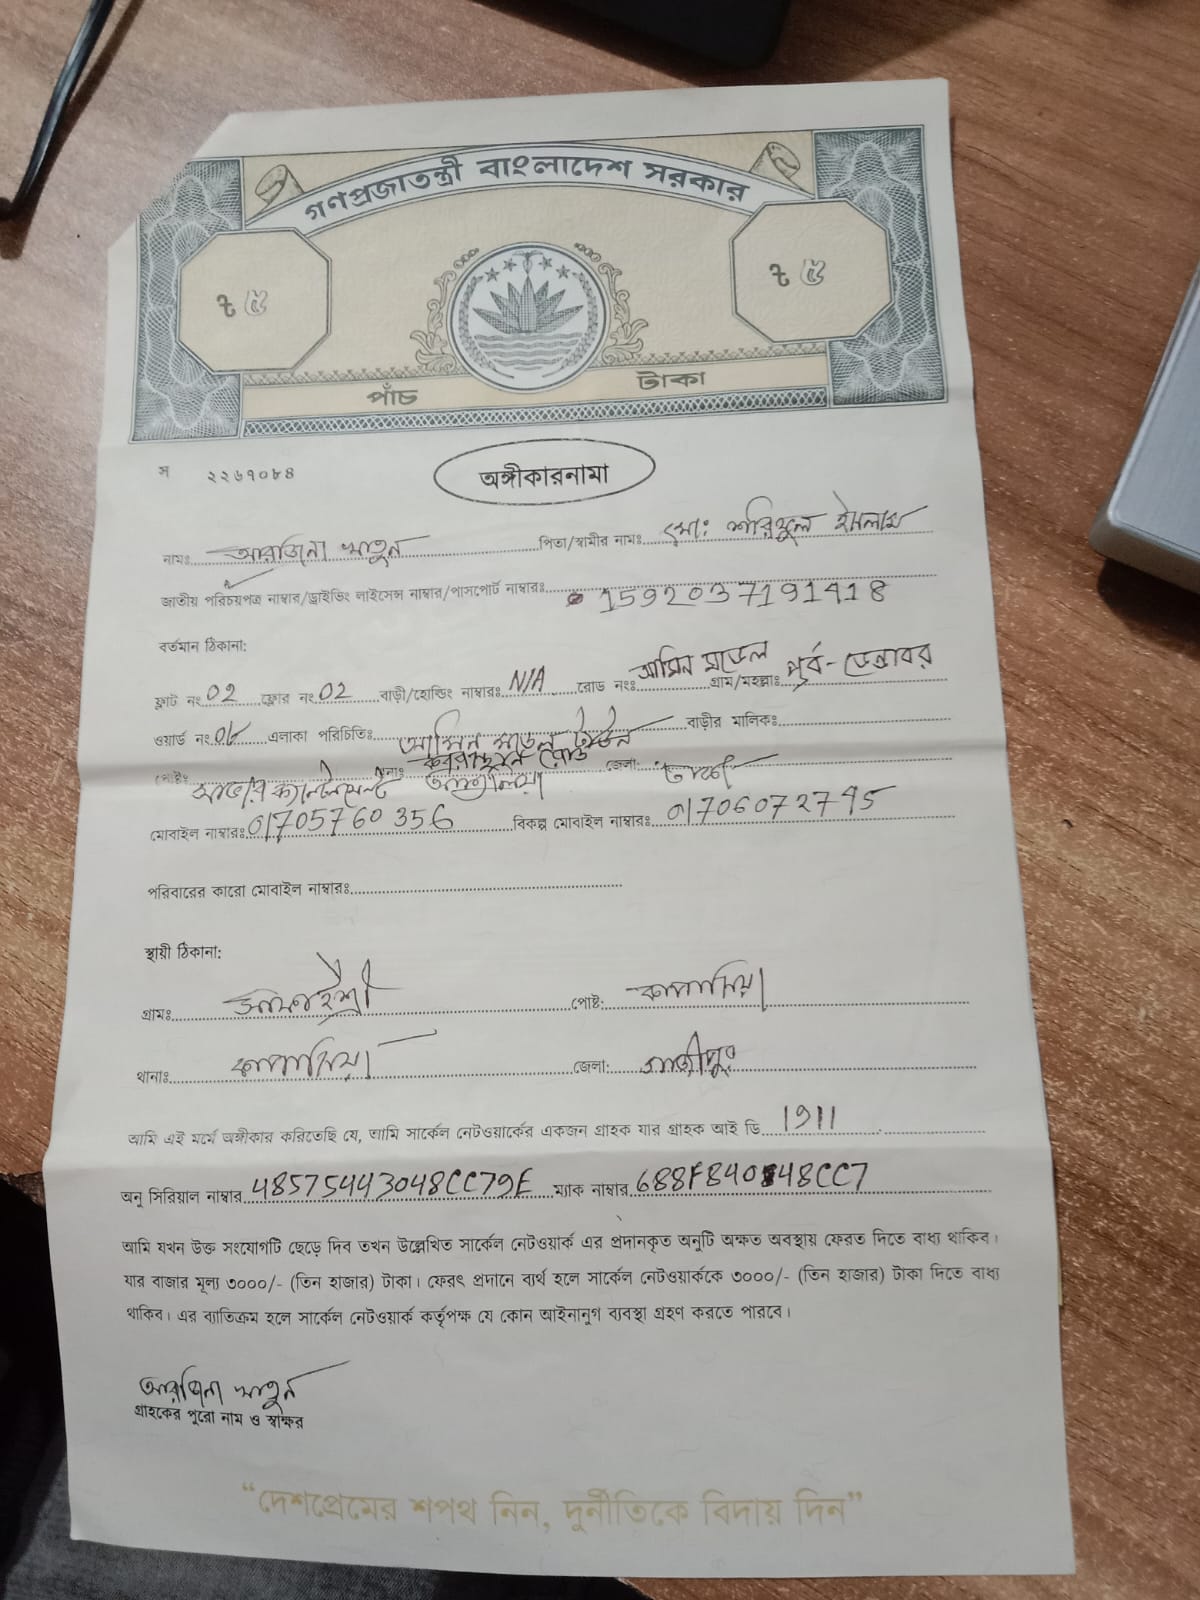 গণপ্রজাতন্ত্রী বাংলাদেশ সরকার
৳ ৫
৳ ৫
পাঁচ টাকা
স ২২৬৭০৮৪
অঙ্গীকারনামা
নামঃ আরজিনা খাতুন পিতা/স্বামীর নামঃ মোঃ শরিফুল ইসলাম
জাতীয় পরিচয়পত্র নাম্বার/ড্রাইভিং লাইসেন্স নাম্বার/পাসপোর্ট নাম্বারঃ 1592037191418
বর্তমান ঠিকানা:
ফ্লাট নং 02 ফ্লোর নং 02 বাড়ী/হোল্ডিং নাম্বারঃ N/A রোড নংঃ আমিন মডেল গ্রাম/মহল্লাঃ পূর্ব-ডেন্ডাবর
ওয়ার্ড নং 08 এলাকা পরিচিতিঃ আমিন মডেল টাউন বাড়ীর মালিকঃ
কবরস্থান রোড
পোষ্টঃ সাভার ক্যান্টনমেন্ট থানাঃ আশুলিয়া জেলা: ঢাকা
মোবাইল নাম্বারঃ 01705760356 বিকল্প মোবাইল নাম্বারঃ 01706072795
পরিবারের কারো মোবাইল নাম্বারঃ
স্থায়ী ঠিকানা:
গ্রামঃ পোষ্ট: কাপাসিয়া
থানাঃ কাপাসিয়া জেলা: গাজীপুর
আমি এই মর্মে অঙ্গীকার করিতেছি যে, আমি সার্কেল নেটওয়ার্কের একজন গ্রাহক যার গ্রাহক আই ডি 1911
অনু সিরিয়াল নাম্বার 48575443048CC79E ম্যাক নাম্বার 688F84048CC7
আমি যখন উক্ত সংযোগটি ছেড়ে দিব তখন উল্লেখিত সার্কেল নেটওয়ার্ক এর প্রদানকৃত অনুটি অক্ষত অবস্থায় ফেরত দিতে বাধ্য থাকিব।
যার বাজার মূল্য ৩০০০/- (তিন হাজার) টাকা। ফেরৎ প্রদানে ব্যর্থ হলে সার্কেল নেটওয়ার্ককে ৩০০০/- (তিন হাজার) টাকা দিতে বাধ্য
থাকিব। এর ব্যতিক্রম হলে সার্কেল নেটওয়ার্ক কর্তৃপক্ষ যে কোন আইনানুগ ব্যবস্থা গ্রহণ করতে পারবে।
আরজিনা খাতুন
গ্রাহকের পুরো নাম ও স্বাক্ষর
“দেশপ্রেমের শপথ নিন, দুর্নীতিকে বিদায় দিন”